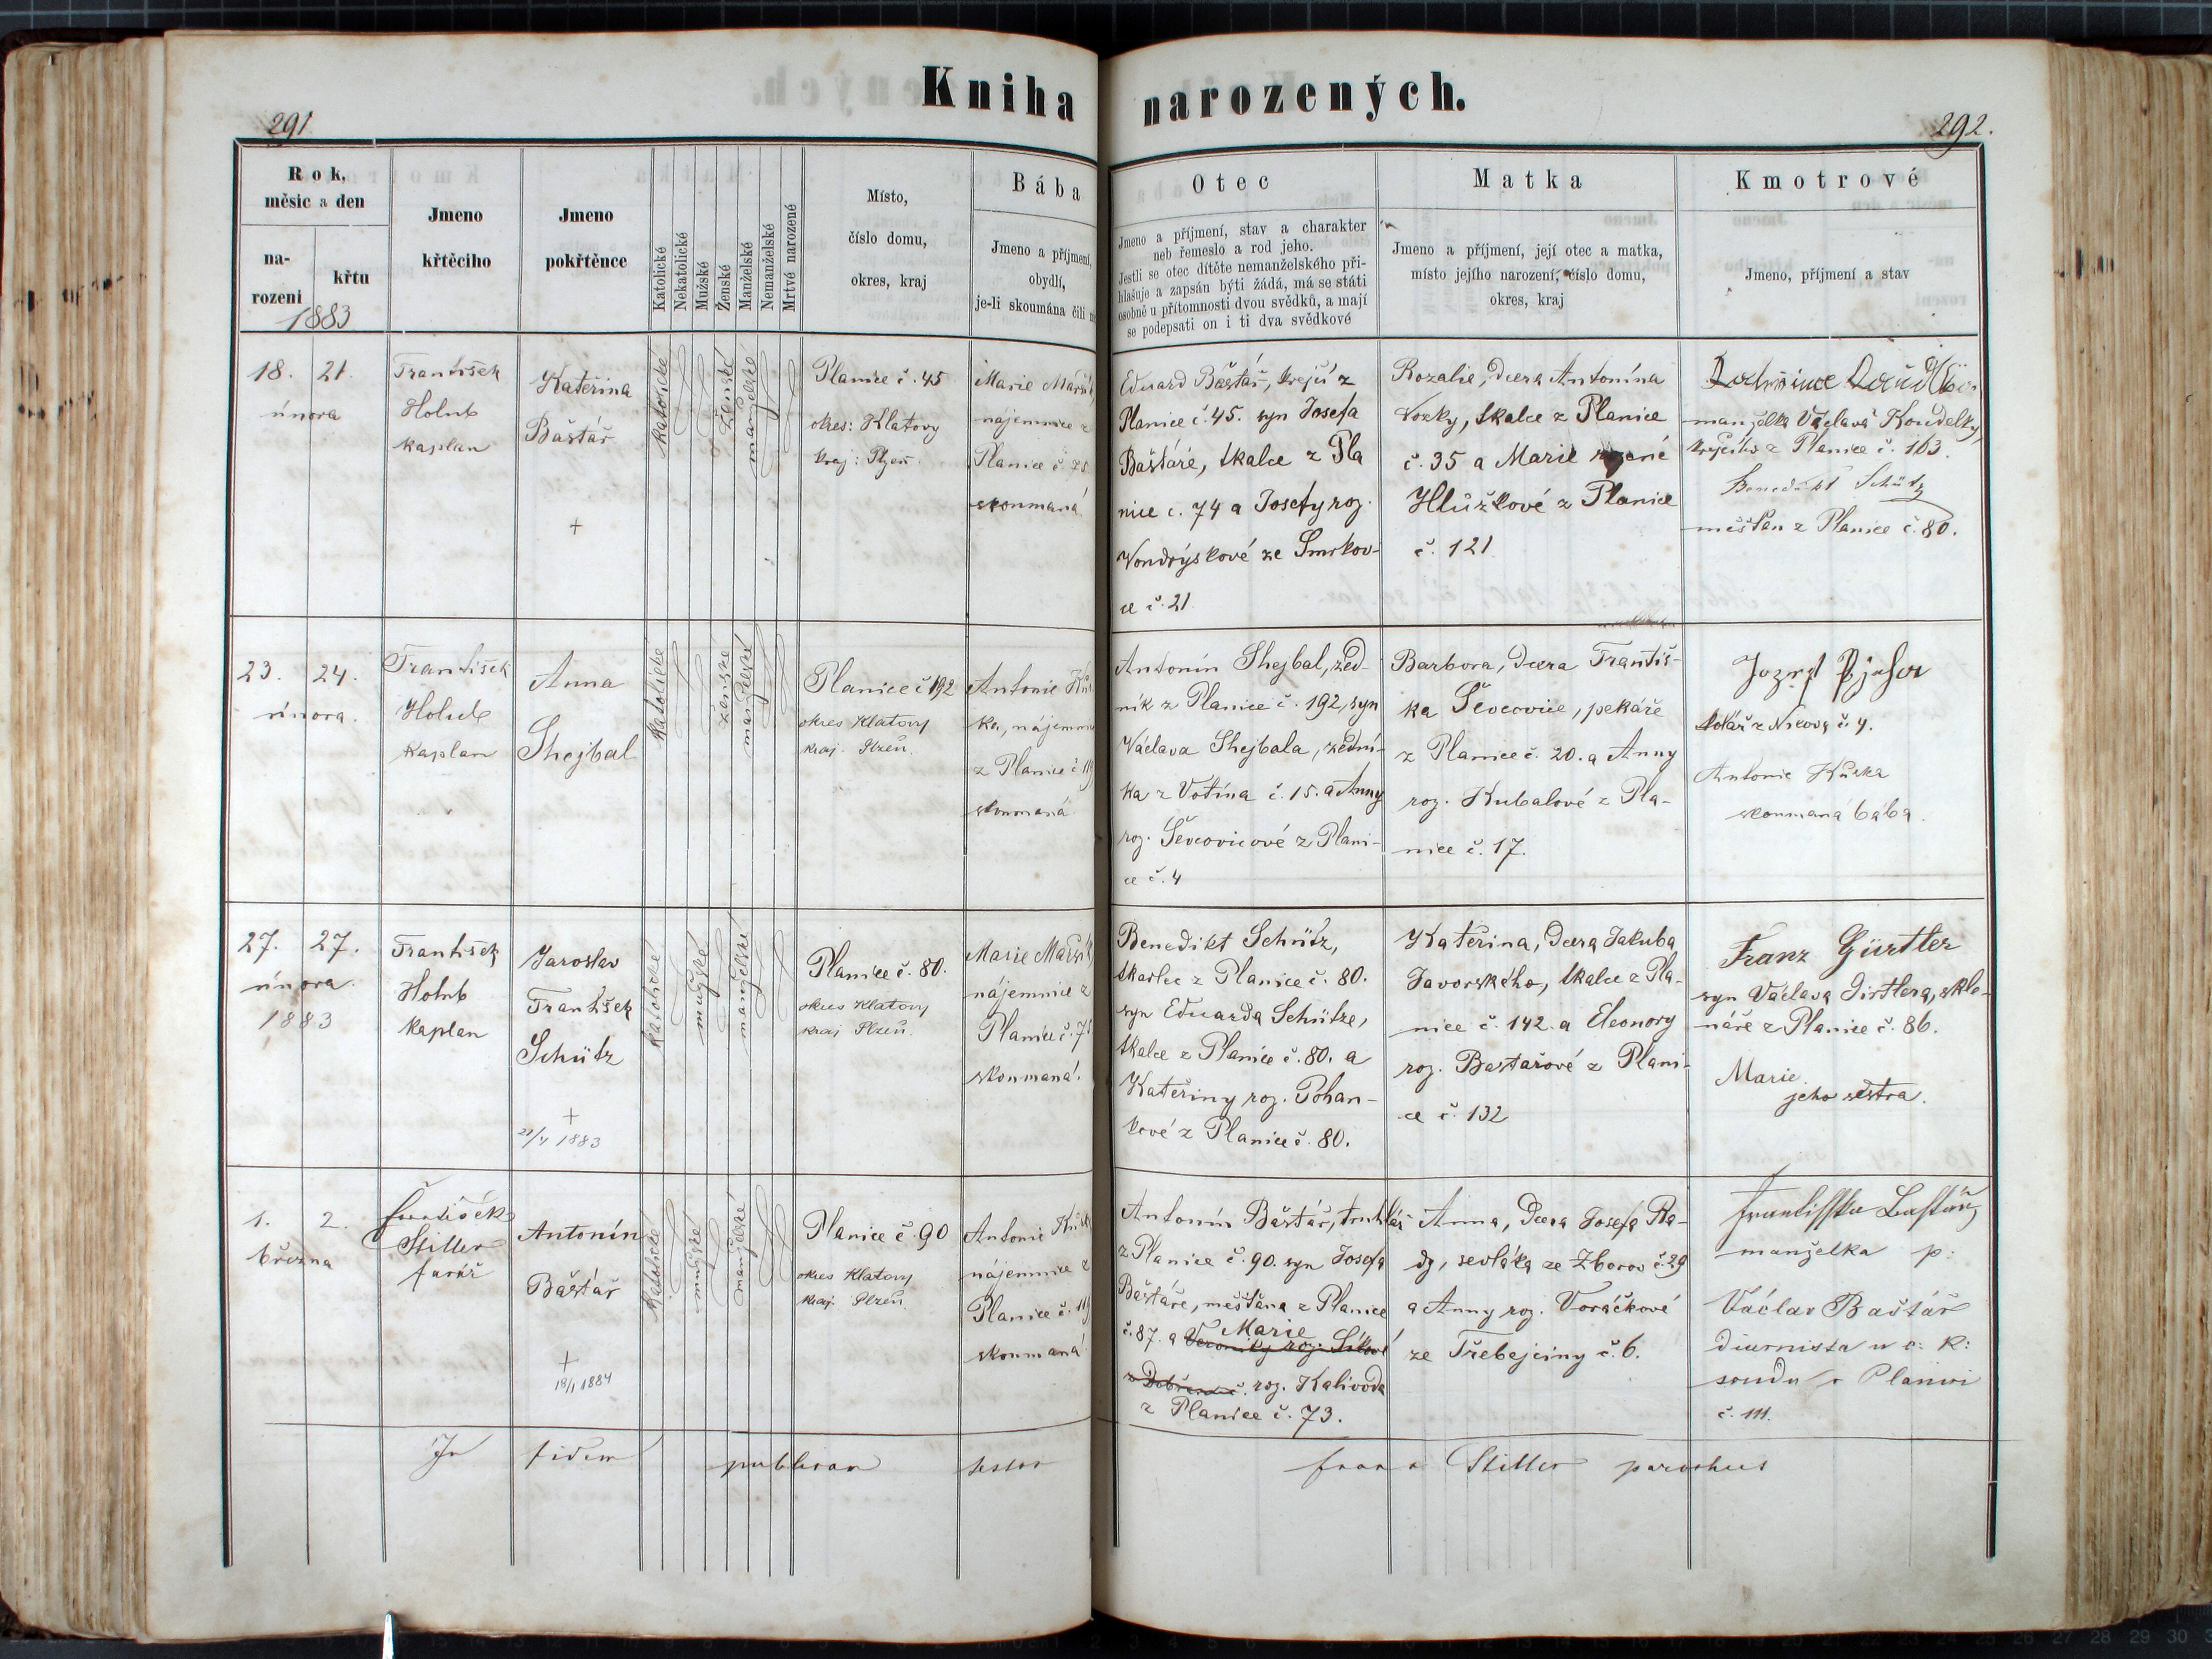 Kniha narozených.
291
292.
Rok, měsíc a den
narození
křtu
1883
Jmeno křtěcího
Jmeno pokřtěnce
Katolické
Nekatolické
Mužské
Ženské
Manželské
Nemanželské
Mrtvé narozené
Místo,
číslo domu,
okres, kraj
Bába
Jmeno a příjmení,
obydlí,
je-li skoumána čili
Otec
Jmeno a příjmení, stav a charakter
neb řemeslo a rod jeho.
Jestli se otec dítěte nemanželského při-
hlašuje a zapsán býti žádá, má se státi
osobně u přítomnosti dvou svědků, a mají
se podepsati on i ti dva svědkové
Matka
Jmeno a příjmení, její otec a matka,
místo jejího narození, číslo domu,
okres, kraj
Kmotrové
Jmeno, příjmení a stav
18. 21.
února
František
Holub
kaplan
Kateřina
Baštář
+
katolické
ženské
manželské
Planice č. 45
okres: Klatovy
kraj: Plzeň
Marie
nájemnice z
Planice č. 75
skoumaná
Eduard Baštář, krejčí z
Planice č. 45. syn Josefa
Baštáře, tkalce z Pla
nice č. 74 a Josefy roz.
Vondryskové ze Smrkov-
ce č. 21
Rozalie, dcera Antonína
Vozky, tkalce z Planice
č. 35 a Marie
Hlůžkové z Planice
č. 121
manželka Václava Koudelky,
krejčího z Planice č. 163.
Benedikt Schütz
měšťan z Planice č. 80.
23. 24.
února.
František
Holub
Kaplan
Anna
Shejbal
katolické
ženské
manželské
Planice č 192
okres Klatovy
kraj. Plzeň.
Antonie
ka,
z Planice č
skoumaná.
Antonín Shejbal, zed-
ník z Planice č. 192, syn
Václava Shejbala, zední-
ka z Votína č. 15. a Anny
roz. Ševcovicové z Plani-
ce č. 4
Barbora, dcera Františ-
ka Ševcovice, pekáře
z Planice č. 20. a Anny
roz. Kubalové z Pla-
nice č. 17.
kolář z Nicova č 4.
Antonie Kůrka
skoumaná bába.
27. 27.
února.
1883
František
Holub
Kaplan
Jaroslav
František
Schütz
+
1883
katolické
mužské
manželské
Planice č. 80.
okres Klatovy
kraj Plzeň
Marie
nájemnice z
Planice č. 75
skoumaná.
Benedikt Schütz,
tkadlec z Planice č. 80.
syn Eduarda Schütze,
tkalce z Planice č. 80. a
Kateřiny roz. Pohan-
kové z Planice č. 80.
Kateřina, dcera Jakuba
Javorského, tkalce z Pla-
nice č. 142. a Eleonory
roz. Bastařové z Plani-
ce č. 132
Franz Gürtler
syn Václava Girtlera, skle-
náře z Planice č. 86.
Marie
jeho sestra.
1. 2.
března
František
Stiller
farář
Antonín
Baštář
+
18/1 1884
katolické
mužské
manželské
Planice č. 90
okres Klatovy
kraj. Plzeň.
Antonie
nájemnice z
Planice č.
skoumaná
Antonín Baštář, truhlář
z Planice č. 90. syn Josefa
Baštáře, měšťana z Planice
Marie
č. 87. a Veroniky roz.
roz. Kalivoda
z Planice č. 73.
Anna, dcera Josefa Ra-
dy, sedláka ze Zborov č. 29
a Anny roz. Voráčkové
ze Třebejciny č. 6.
manželka p:
Václav Baštář
diurnista u c: k:
soudu v Planici
č. 111.
In fidem publicam testor
Franz Stiller parochus